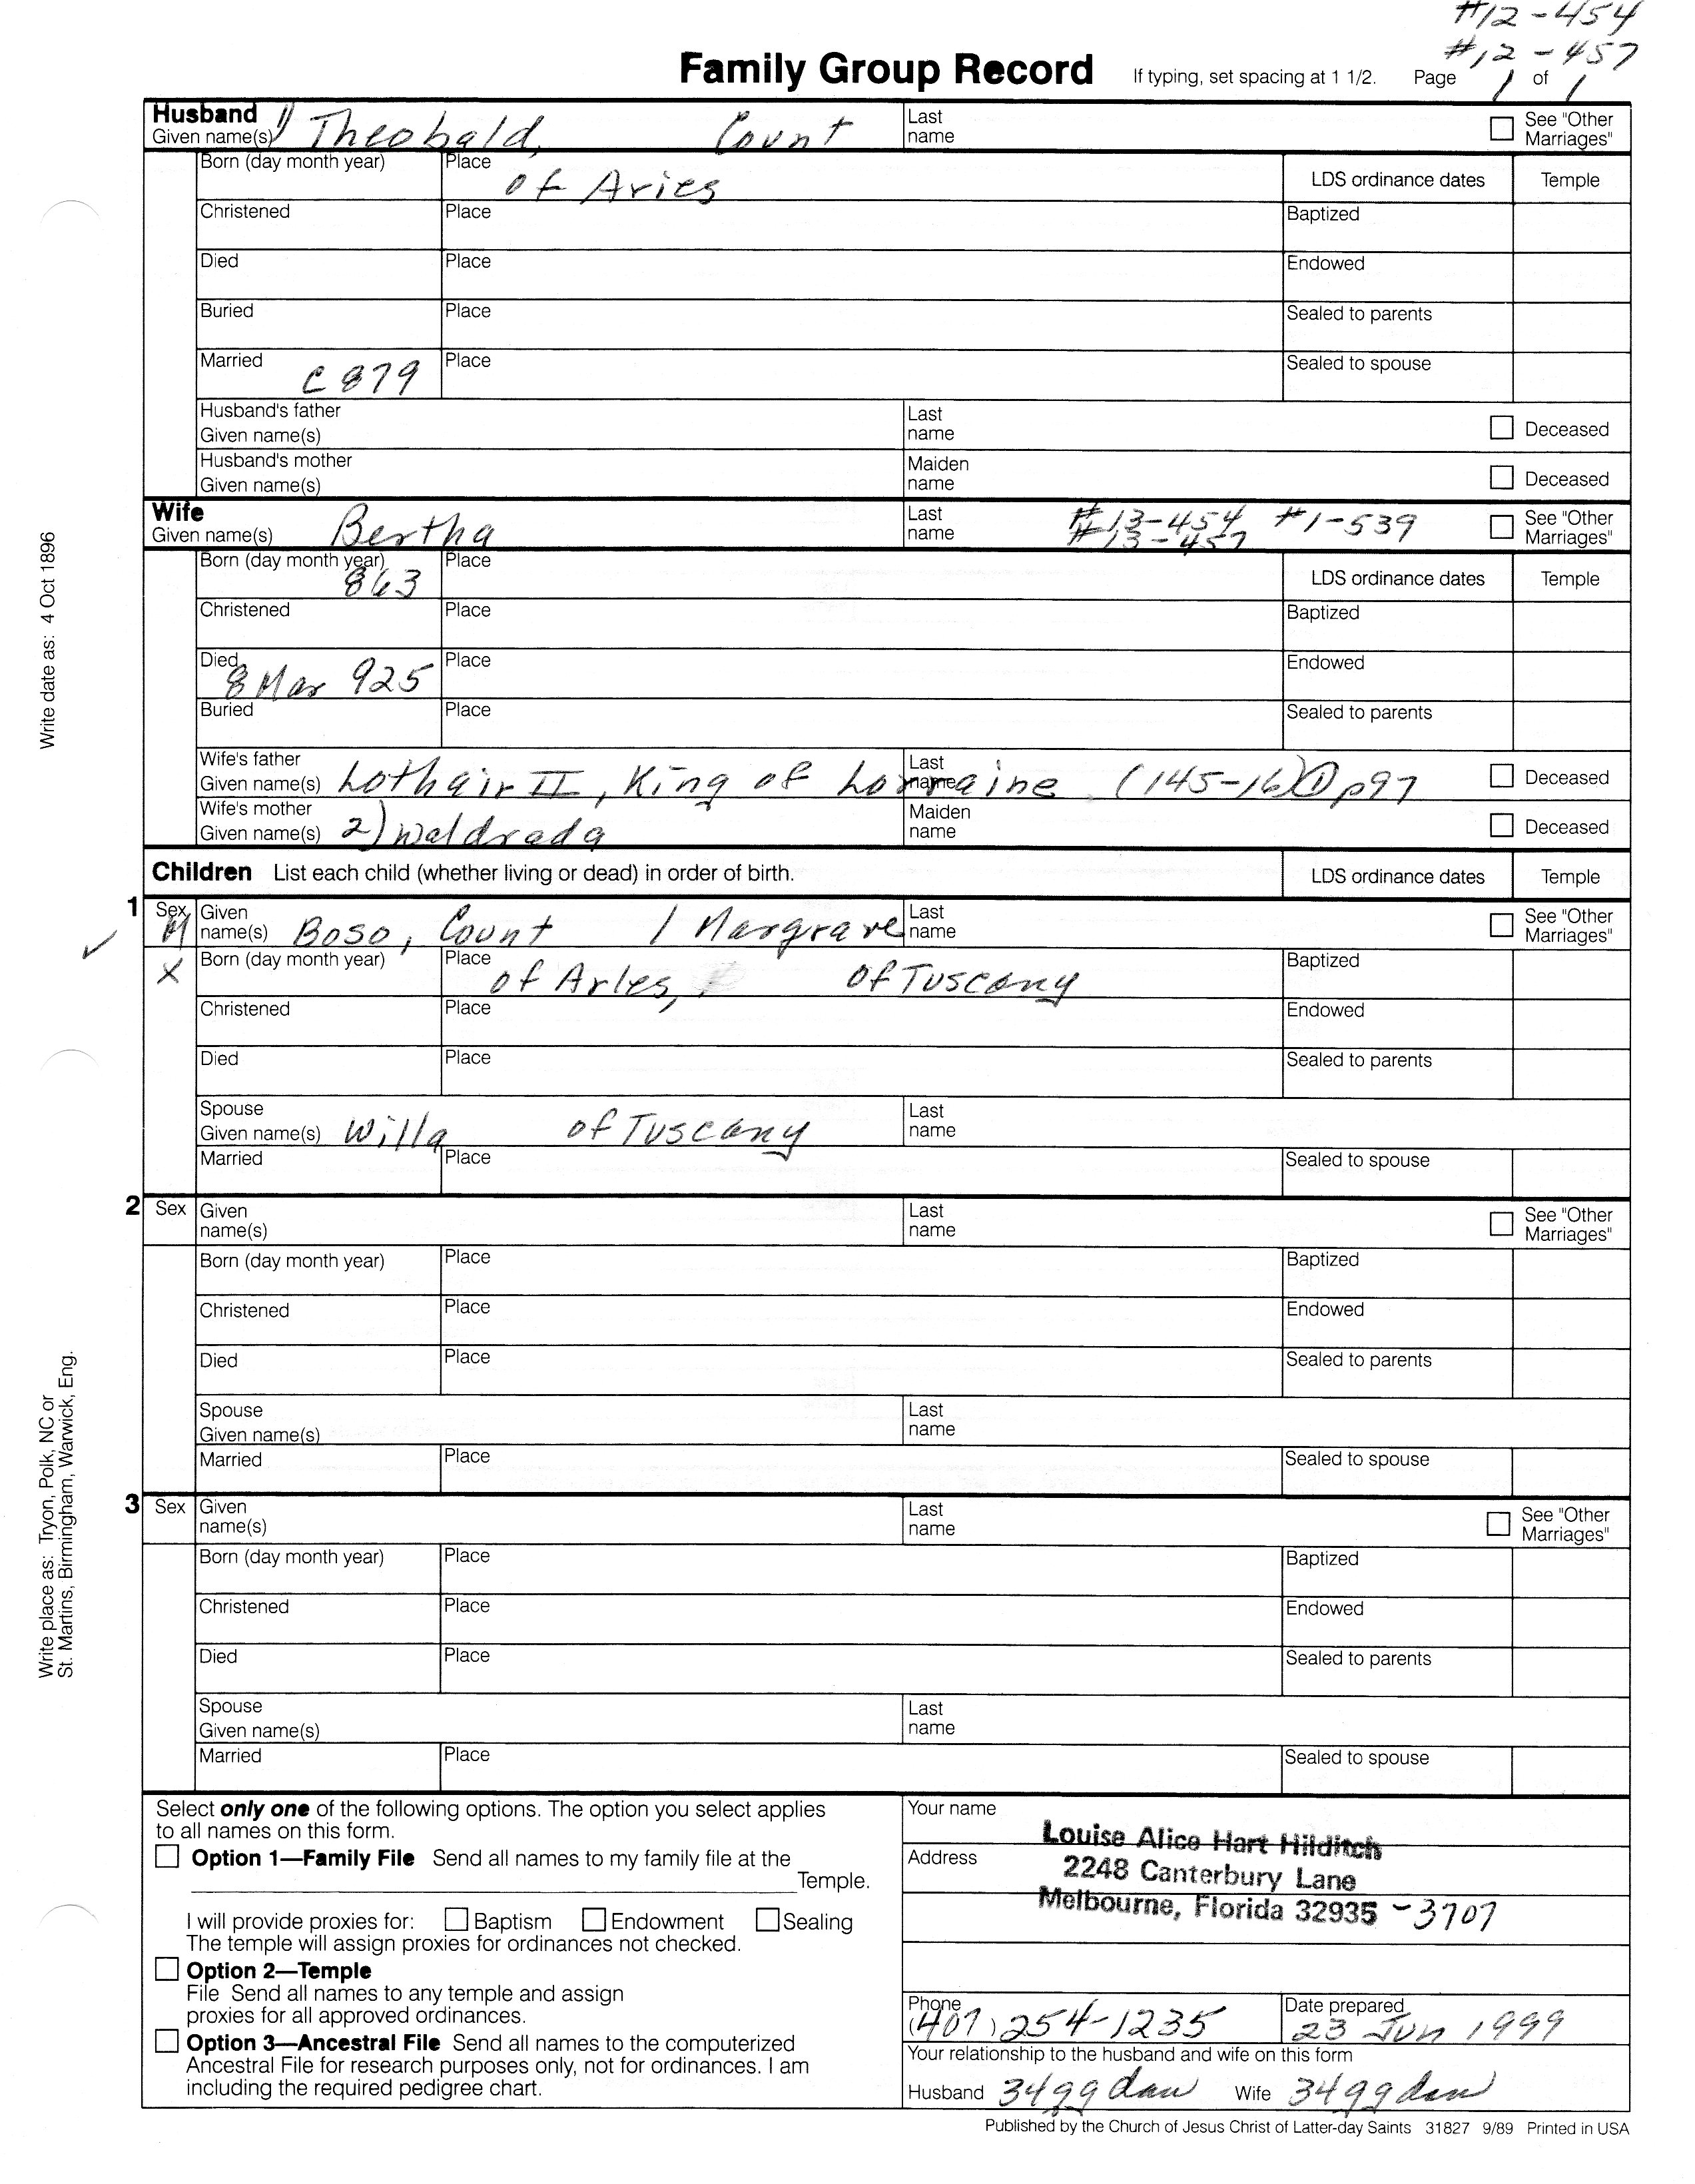 #12-454
#12-457
Family Group Record If typing, set spacing at 1 1/2. Page 1 of 1
Husband
Given name(s) 1) Theobald, Count Last name See "Other Marriages"
Born (day month year) Place of Aries LDS ordinance dates Temple
Christened Place Baptized
Died Place Endowed
Buried Place Sealed to parents
Married C 879 Place Sealed to spouse
Husband's father
Given name(s) Last name Deceased
Husband's mother
Given name(s) Maiden name Deceased
Wife
Given name(s) Bertha Last name #13-454 #1-539 See "Other Marriages"
#13-457
Born (day month year) 863 Place LDS ordinance dates Temple
Christened Place Baptized
Died 8 Mar 925 Place Endowed
Buried Place Sealed to parents
Wife's father
Given name(s) Lothair II, King of Lorraine (145-16) ① p97 Last name Deceased
Wife's mother
Given name(s) 2) Waldrada Maiden name Deceased
Children List each child (whether living or dead) in order of birth. LDS ordinance dates Temple
1 Sex M Given name(s) Boso, Count / Margrave Last name See "Other Marriages"
X Born (day month year) Place of Arles, of Tuscany Baptized
Christened Place Endowed
Died Place Sealed to parents
Spouse
Given name(s) Willa of Tuscany Last name
Married Place Sealed to spouse
2 Sex Given name(s) Last name See "Other Marriages"
Born (day month year) Place Baptized
Christened Place Endowed
Died Place Sealed to parents
Spouse
Given name(s) Last name
Married Place Sealed to spouse
3 Sex Given name(s) Last name See "Other Marriages"
Born (day month year) Place Baptized
Christened Place Endowed
Died Place Sealed to parents
Spouse
Given name(s) Last name
Married Place Sealed to spouse
Select only one of the following options. The option you select applies
to all names on this form.
Option 1—Family File Send all names to my family file at the
Temple.
I will provide proxies for: Baptism Endowment Sealing
The temple will assign proxies for ordinances not checked.
Option 2—Temple
File Send all names to any temple and assign
proxies for all approved ordinances.
Option 3—Ancestral File Send all names to the computerized
Ancestral File for research purposes only, not for ordinances. I am
including the required pedigree chart.
Your name
Louise Alice Hart Hilditch
Address
2248 Canterbury Lane
Melbourne, Florida 32935 -3707
Phone (407) 254-1235 Date prepared 23 Jun 1999
Your relationship to the husband and wife on this form
Husband 34 gg dau Wife 34 gg dau
Published by the Church of Jesus Christ of Latter-day Saints 31827 9/89 Printed in USA
Write date as: 4 Oct 1896
Write place as: Tryon, Polk, NC or
St. Martins, Birmingham, Warwick, Eng.